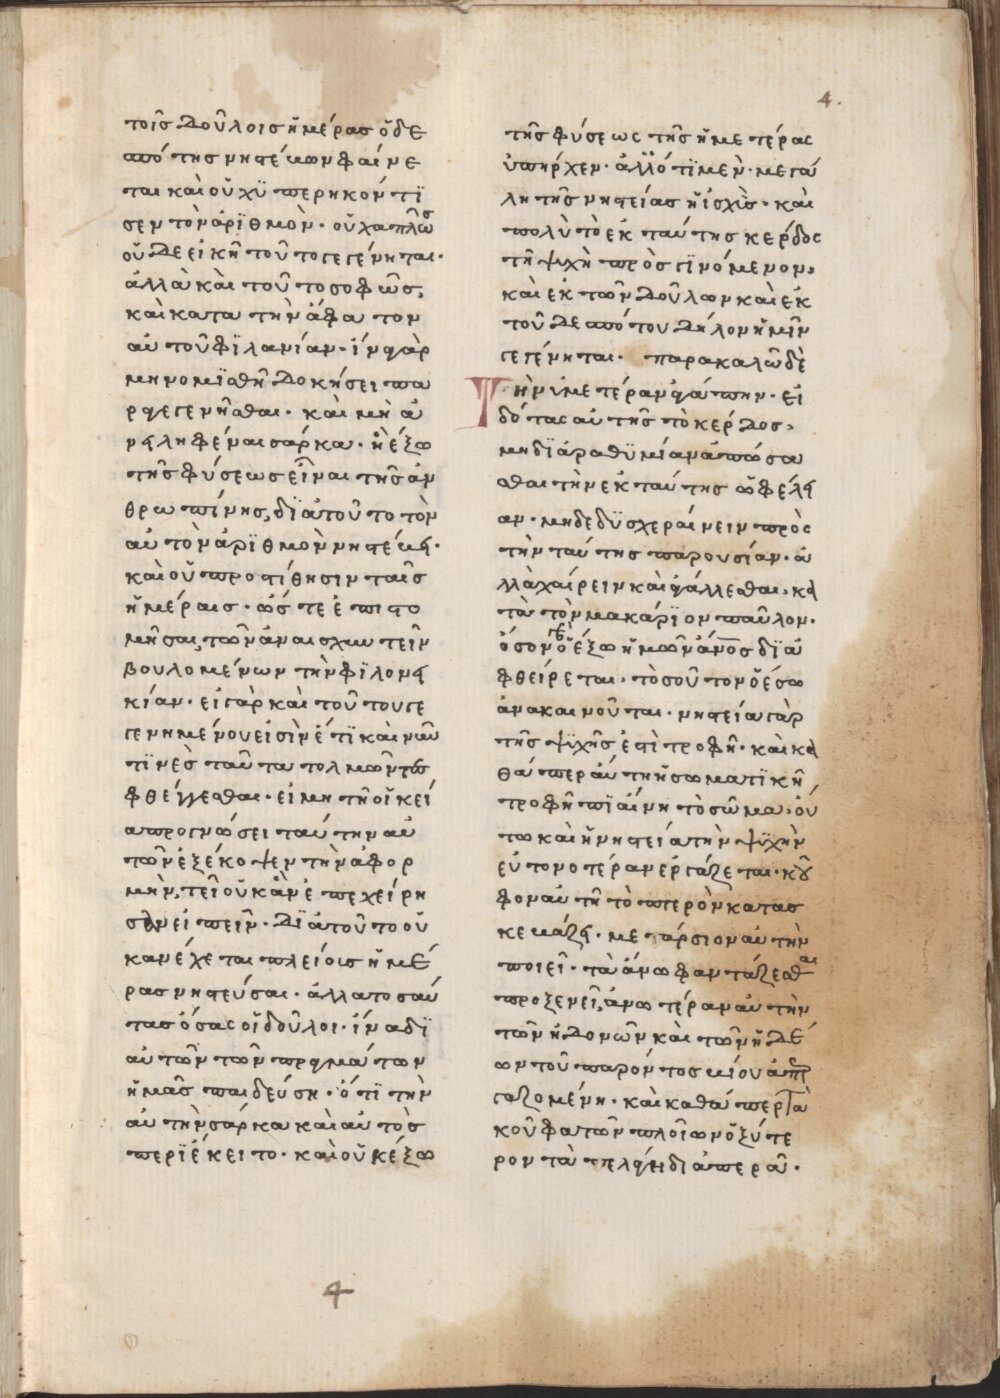 4.
τοῖς δοῦλοισ ἡμέρασ ὁ δε
σπότης νηστεύων φαίνε
ται καὶ οὐχ ϋπερηκόντϊ
σεν τὸν ἀρϊθμὸν· οὐχ ἁπλῶσ
οὐδε εἰκῆ τοῦτο γεγένηται·
ἀλλὰ καὶ τοῦτο σοφῶσ,
καὶ κατα τὴν ἄφατον
αὐτοῦ φϊλανϊαν· ἵνα γὰρ
μὴ νομϊσθῆ δοκήσει πα
ραγεγενῆσθαι· καὶ μὴ ἀ
νειληφέναι σάρκα· ἢ ἔξω
τῆς φύσεωσ εἶναι τῆς ἀν
θρωπίνης, δϊὰ τοῦτο τὸν
αὐτὸν ἀρϊθμὸν νηστεύει·
καὶ οὐ προστίθησιν ταῖς
ἡμέραις· ὥστε ἐπιστο
μῆσαι, τῶν ἀναισχυντεῖν
βουλομένων τὴν φϊλονει
κίαν· εἰ γὰρ καὶ τούτου γε
γενημένου εἰσὶν ἔτϊ καὶ νῦν
τϊνὲς ταῦτα τολμῶντες
φθέγγεσθαι· εἰ μη τῆ οἰκεί
α προγνώσει ταύτην αὐ
τῶν ἐξέκοψεν τὴν ἀφορ
μὴν, τί οὐκ ἂν ἐπεχείρη
σαν εἰπεῖν· δϊὰ τοῦτο οὐ
κ ἀνέχεται πλείοισ ἡμέ
ρας νηστεῦσαι· ἀλλα τοσαύ
τας ὅσας οἱ δοῦλοι· ἵνα δϊ
αὐτῶν τῶν πραγμάτων
ἡμᾶς παιδεύση· ὅτϊ τὴν
αὐτὴν σάρκα καὶ αὐτὸς
περϊέκειτο· καὶ οὐκ ἔξω
4
τῆς φύσεως τῆς ἡμετέρας
ὑπῆρχεν· ἀλλ' ὅτϊ μὲν· μεγά
λη τῆς νηστείας ἡ ἰσχὺς· καὶ
πολὺ τὸ ἐκ ταύτης κέρδος
τῆ ψυχῆ προσγϊνόμενον,
καὶ ἐκ τῶν δούλων καὶ ἐκ
τοῦ δεσπότου δῆλον ἡμῖν
γεγένηται· παρακαλῶ δὲ
Τὴν ὑμετέραν ἀγάπην· εἰ
δότας αὐτῆς τὸ κέρδος,
μη δϊὰ ραθϋμίαν ἀπώσα
σθαι τὴν ἐκ ταύτης ὠφέλει
αν· μηδε δϋσχεραίνειν πρὸς
τὴν ταύτης παρουσίαν· ἀ
λλὰ χαίρειν καὶ ἀγάλλεσθαι, κα
τὰ τὸν μακάρϊον παῦλον·
ὅσον γὰρ ὁ ἔξω ἡμῶν ἄνος δϊα
φθείρεται· τὸσοῦτον ὁ ἔσω
ἀνακαινοῦται· νηστεία γὰρ
τῆς ψϋχῆς ἐστὶ τροφὴ· καὶ κα
θάπερ αὕτη ἡ σωματϊκὴ
τροφὴ πϊαίνη τὸ σῶμα, οὕ
τω καὶ ἡ νηστεία τὴν ψϋχὴν
εὐτονοτέραν ἐργάζεται· κοῦ
φον αὐτῆ τὸ πτερὸν κατασ
κευάζει· μετάρσιον αὐτὴν
ποιεῖ· τὰ ἄνω φαντάζεσθαι
προξενεῖ, ἀνωτέραν αὐτὴν
τῶν ἡδονῶν καὶ τῶν ἡδέ
ων τοῦ παρόντος βίου ἀπερ
γαζομένη· καὶ καθάπερ τὰ
κοῦφα τῶν πλοῖων ὀξύτε
ρον τὰ πελάγη διαπερᾶ·